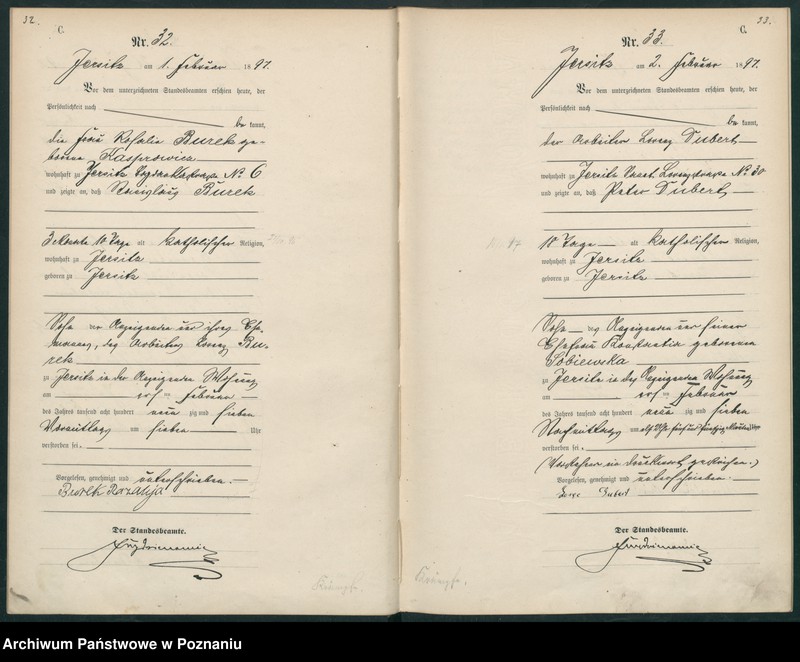 32.
C.
Nr. 32.
Jersitz am 1. Februar 1897.
Vor dem unterzeichneten Standesbeamten erschien heute, der
Persönlichkeit nach
be kannt,
die Frau Rosalie Burek ge-
borene Kasprowicz
wohnhaft zu Jersitz No 6
und zeigte an, daß Stanislaus Burek
3 Monate 10 Tage alt katholischer Religion,
wohnhaft zu Jersitz
geboren zu Jersitz
Sohn der Anzeigenden und ihres Ehe-
mannes, des Arbeiters Lorenz Bu-
rek
zu Jersitz in der Anzeigenden Wohnung
am ersten Februar
des Jahres tausend acht hundert neun zig und sieben
Vormittags um sieben Uhr
verstorben sei.
Vorgelesen, genehmigt und unterschrieben.
Burek Rozalija
Der Standesbeamte.
Krämpfe.
33.
C.
Nr. 33.
Jersitz am 2. Februar 1897.
Vor dem unterzeichneten Standesbeamten erschien heute, der
Persönlichkeit nach
be kannt,
der Arbeiter Lorenz Dubert
wohnhaft zu Jersitz Sankt Lorenzstrasse No 30
und zeigte an, daß Peter Dubert
10 Tage alt katholischer Religion,
wohnhaft zu Jersitz
geboren zu Jersitz
Sohn des Anzeigenden und seiner
Ehefrau Konstantia geborenen
Sobiewska
zu Jersitz in der Anzeigenden Wohnung
am ersten Februar
des Jahres tausend acht hundert neun zig und sieben
Nachmittags um elf Uhr fünf und fünfzig Minuten
verstorben sei.
(Vorstehen ein Druckwort gestrichen.)
Vorgelesen, genehmigt und unterschrieben.
Dubert
Der Standesbeamte.
Krämpfe.
Archiwum Państwowe w Poznaniu